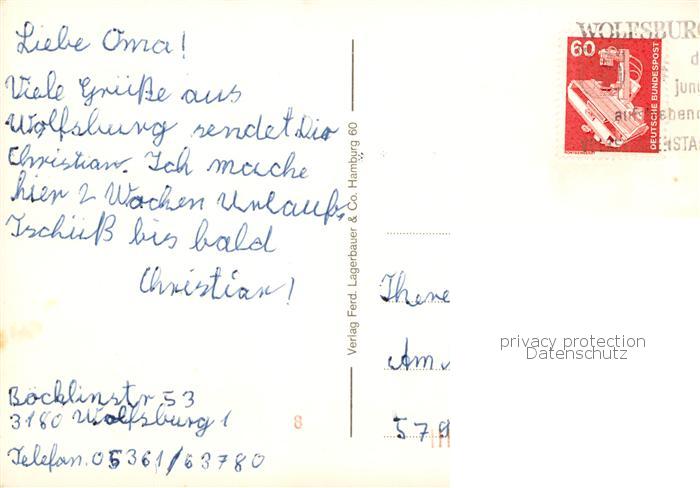 Liebe Oma!
Viele Grüße aus
Wolfsburg sendet Dir
Christian. Ich mache
hier 2 Wochen Urlaub.
Tschüß bis bald
Christian!
Böcklinstr 53
3180 Wolfsburg 1
Telefon. 05361/63780
8
Verlag Ferd. Lagerbauer & Co. Hamburg 60
WOLFSBURG
60
DEUTSCHE BUNDESPOST
Am
579
privacy protection
Datenschutz